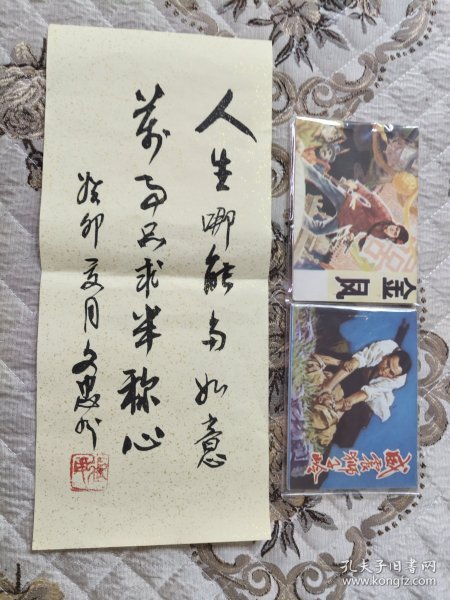 人生哪能多如意
万事只求半称心
癸卯夏月文忠书
金凤
威震狮子岭
孔夫子旧书网
www.kongfz.com